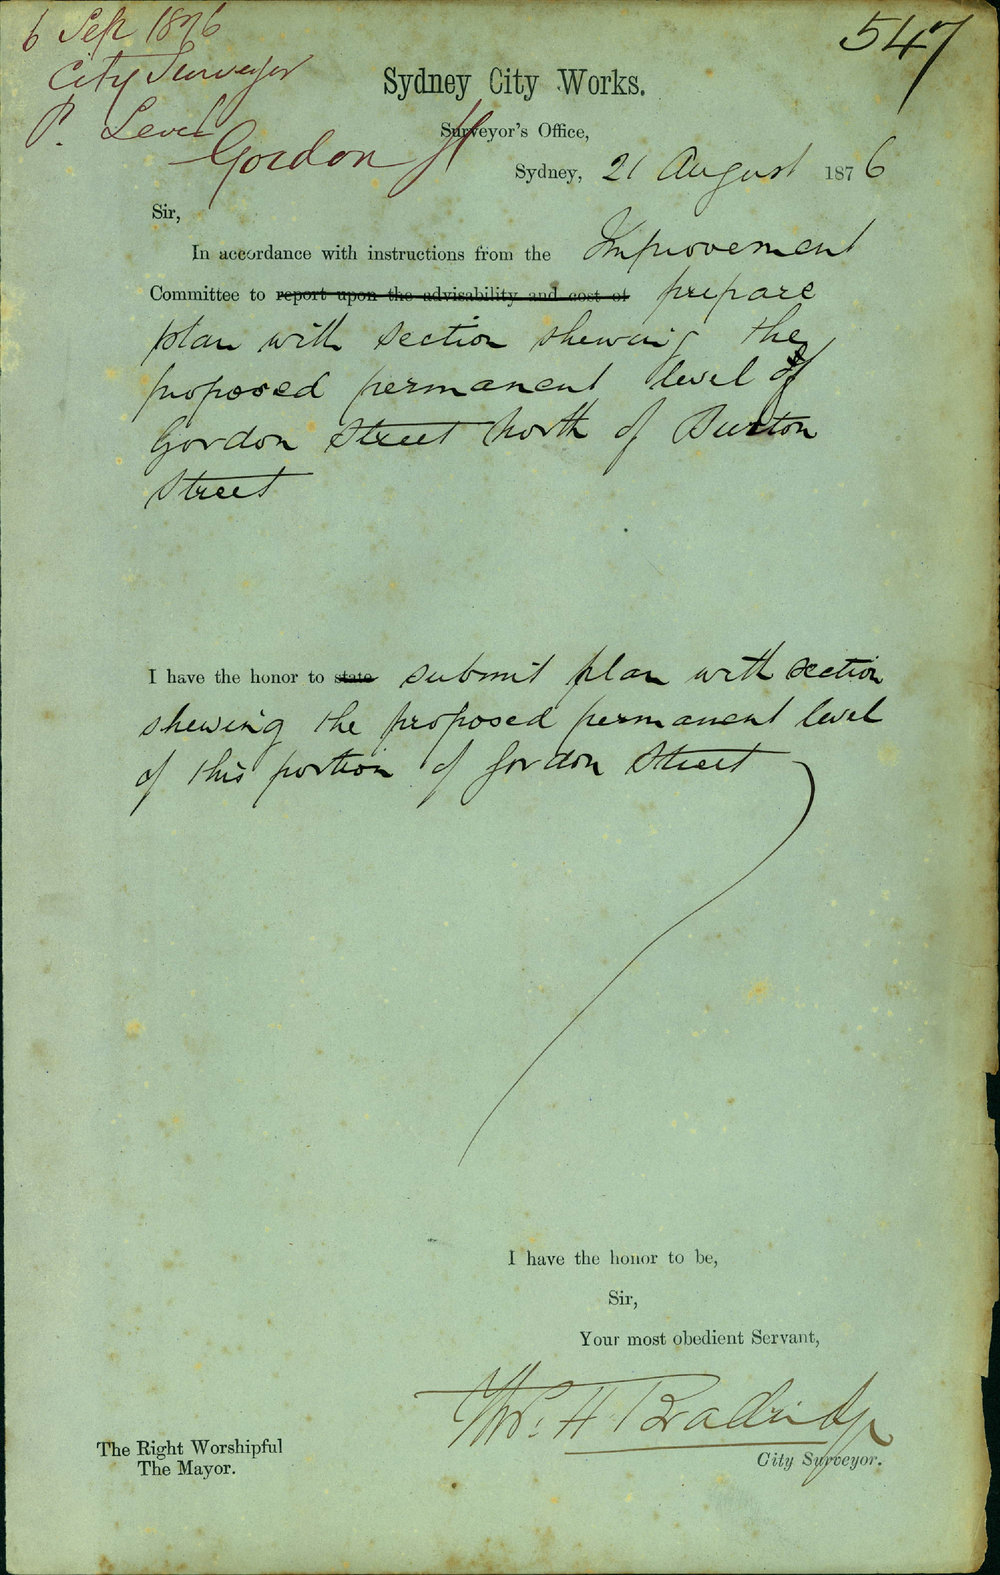 6 Sep 1876
547
City Surveyor
P. Level
Gordon St
Sydney City Works.
Surveyor's Office,
Sydney, 21 August 1876
Sir,
In accordance with instructions from the Improvement
Committee to report upon the advisability and cost of prepare
plan with section shewing the
proposed permanent level of
Gordon Street North of Burton
Street
I have the honor to state submit plan with section
shewing the proposed permanent level
of this portion of Gordon Street
I have the honor to be,
Sir,
Your most obedient Servant,
Thos. H Bradridge
City Surveyor.
The Right Worshipful
The Mayor.